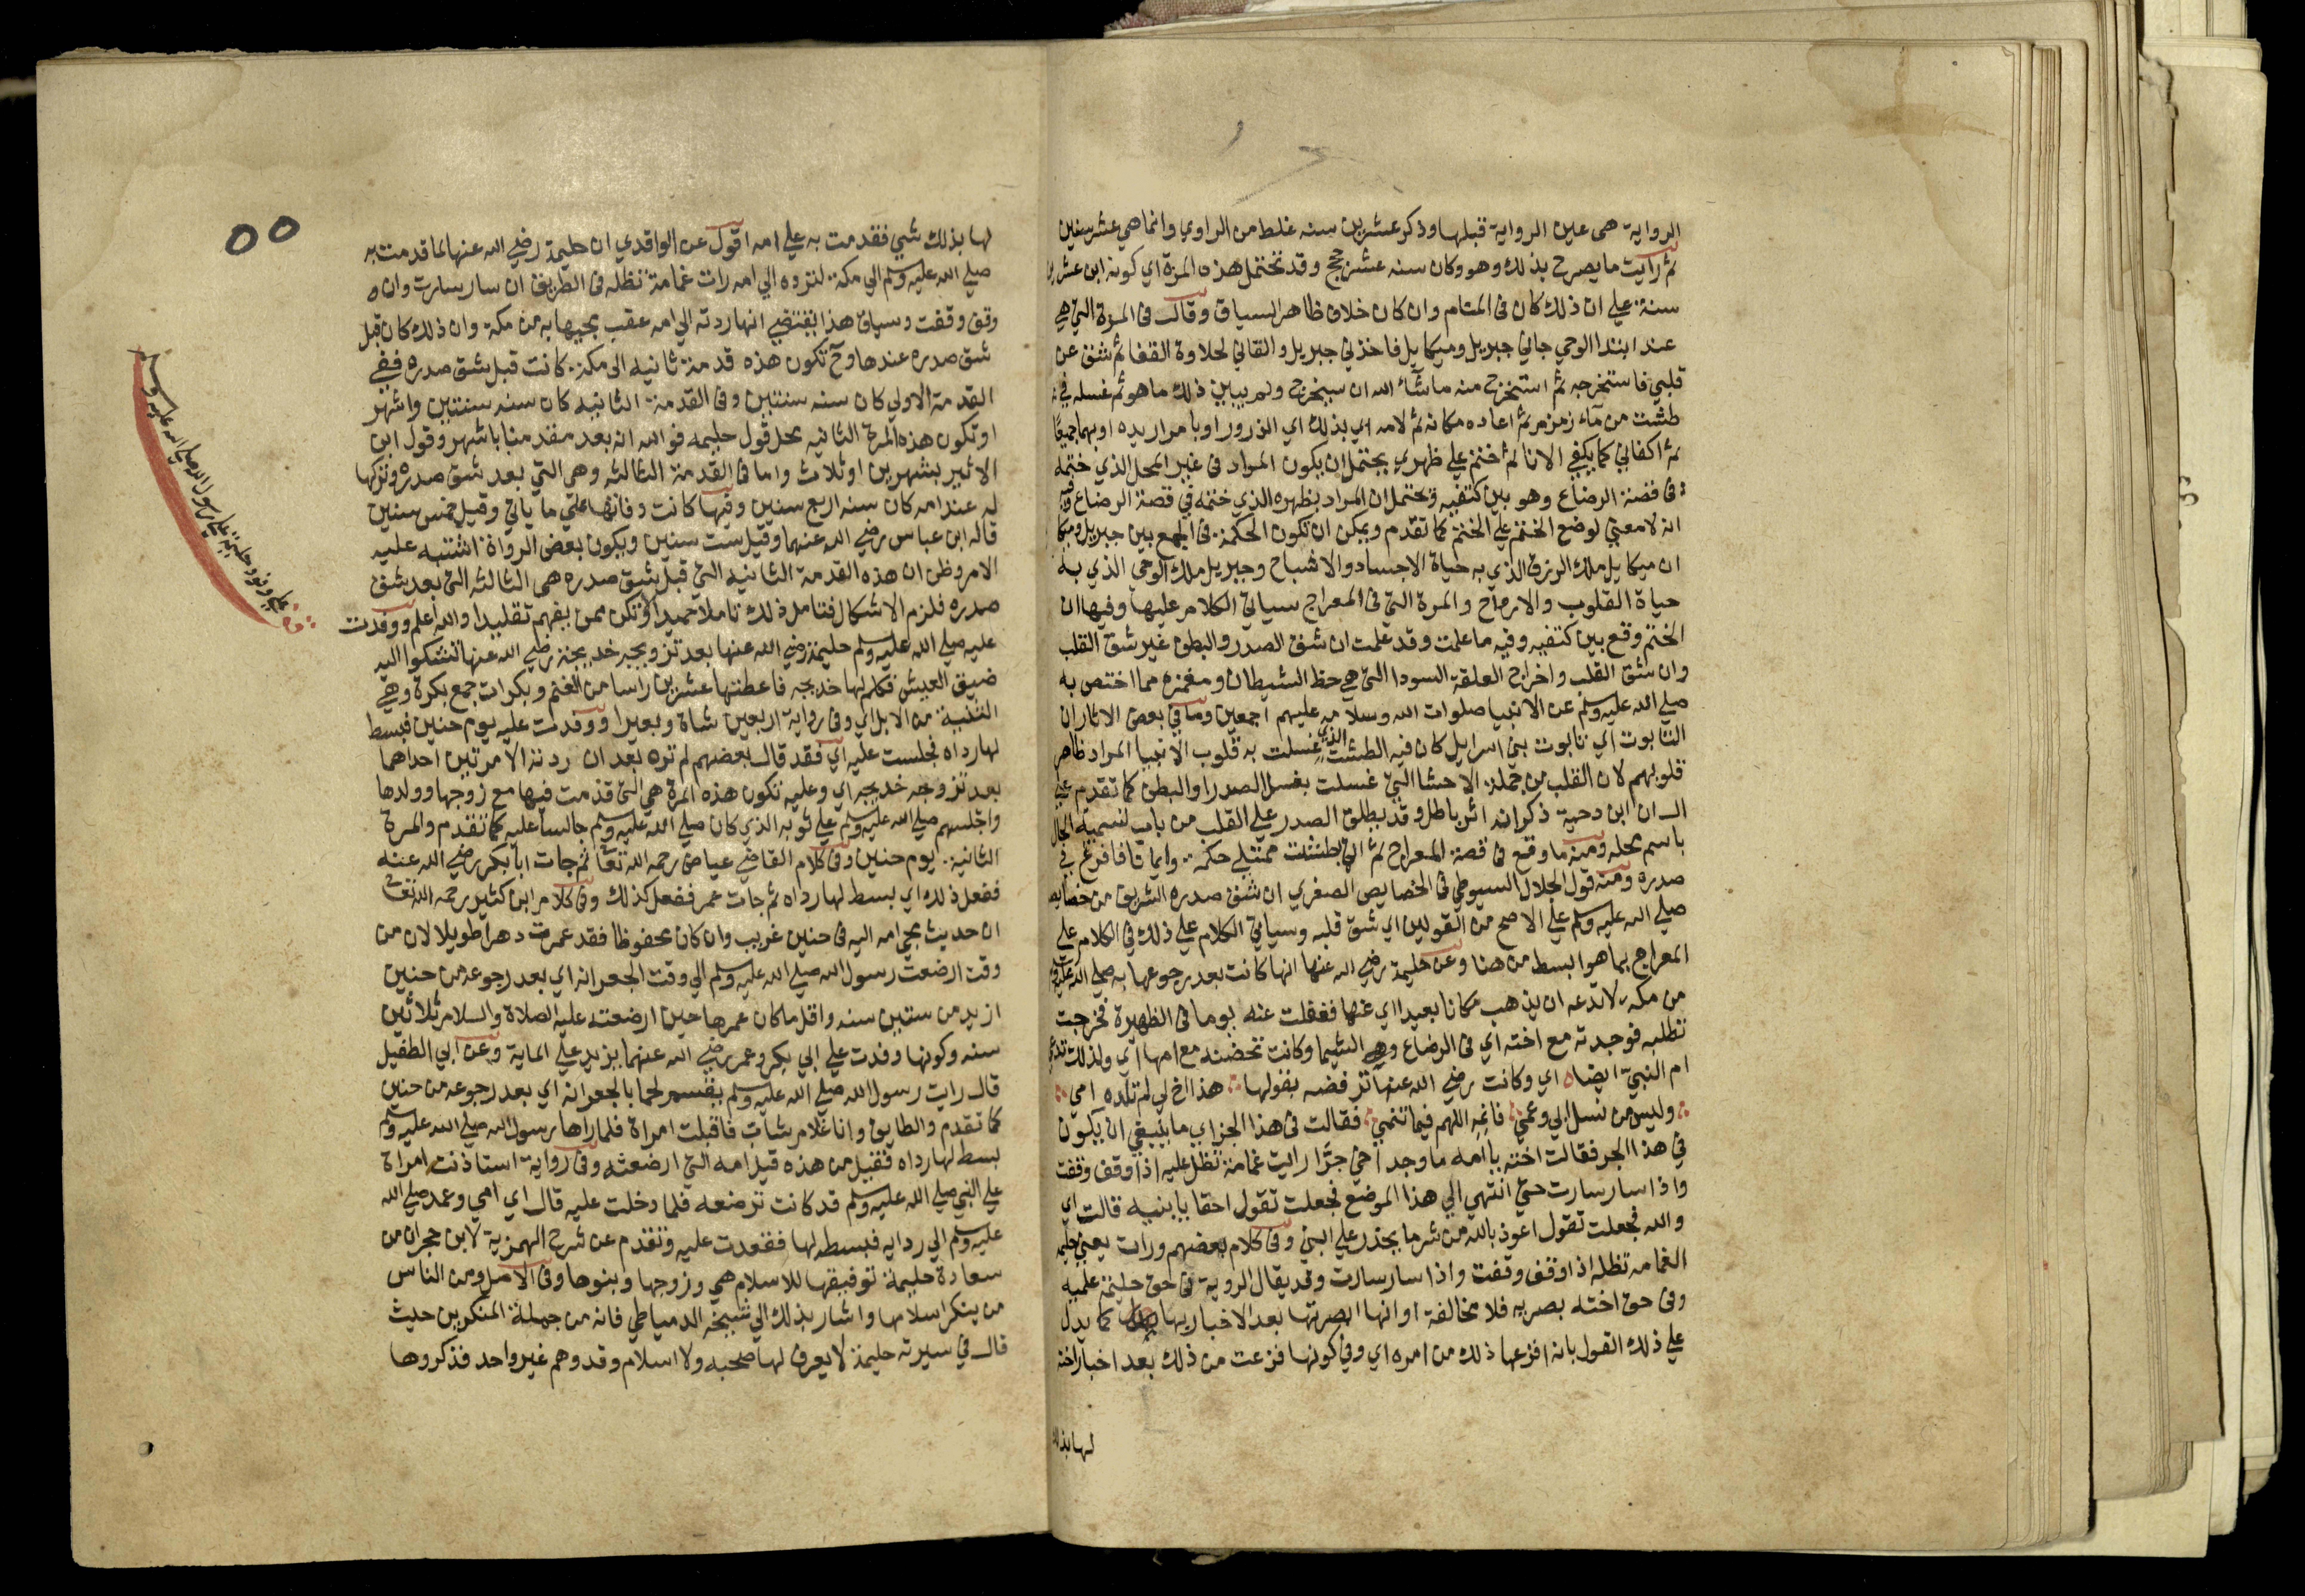 الرواية هي عين الرواية قبلها وذكر عشرين سنه غلط من الراوي وانما هي عشر سنين
ثم رايت ما يصرح بذلك وهو وكان سنه عشر حجج وقد تحتمل هذه المرة اي كونه ابن عشرين
سنة علي ان ذلك كان في المنام وان كان خلاف ظاهر السياق وقال في المرة التي هي
عند ابتدا الوحي جاني جبريل وميكايل فاخذني جبريل والقاني لحلاوة القفا ثم شق عن
قلبي فاستخرجه ثم استخرج منه ماشآء الله ان يستخرج ولم يبين ذلك ما هو ثم غسله في
طشت من مآء زمزم ثم اعاده مكانه ثم لامه اي بذلك اي الذرور او بامرار يده او بهما جميعا
ثم اكفاني كما يكفي الانا ثم ختم علي ظهري يحتمل ان يكون المراد في غير المحل الذي ختمه
في قصة الرضاع وهو بين كتفيه ويحتمل ان المراد بظهره الذي ختمه في قصة الرضاع وفيه
انه لا معني لوضع الختم علي الختم كما تقدم ويمكن ان تكون الحكمة في الجمع بين جبريل وميكا
ان ميكايل ملك الرزق الذي به حياة الاجساد والاشباح وجبريل ملك الوحي الذي به
حياة القلوب والارواح والمرة التي في المعراج سياتي الكلام عليها وفيها ان
الختم وقع بين كتفيه وفيه ما علمت وقد علمت ان شق الصدر والبطن غير شق القلب
وان شق القلب واخراج العلقة السودا التي هي حظ الشيطان ومغمزه مما اختص به
صلي الله عليه وسلم عن الانبيا صلوات الله وسلامه عليهم اجمعين وما في بعض الاثار ان
التابوت اي تابوت بني اسرايل كان فيه الطشت الذي غسلت به قلوب الانبيا المراد ظاهر
قلوبهم لان القلب من جملة الاحشا التي غسلت بغسل الصدر او البطن كما تقدم علي
ان ابن دحية ذكر انه اثر باطل وقد يطلق الصدر علي القلب من باب تسمية الحال
باسم محله ومنه ما وقع في قصة المعراج ثم اتي بطشت ممتلي حكمة وايمانا فافرغ في
صدره ومنه قول الجلال السيوطي في الخصايص الصغري ان شق صدره الشريف من خصايصه
صلي الله عليه وسلم علي الاصح من القولين اي شق قلبه وسياتي الكلام علي ذلك في الكلام علي
المعراج بما هو ابسط من هنا وعن حليمة رضي الله عنها انها كانت بعد رجوعها به صلي الله عليه وسلم
من مكة لا تدعه ان يذهب مكانا بعيدا اي عنها فغفلت عنه يوما في الظهيرة فخرجت
تطلبه فوجدته مع اخته اي في الرضاع وهي الشيما وكانت تحضنه مع امها اي ولذلك تدعي
ام النبي ايضاه اي وكانت رضي الله عنها ترقصه بقولها هذا اخ لي لم تلده امي
وليس من نسل ابي وعمي فانمه اللهم فيما تنمي فقالت في هذا الحر اي ما ينبغي ان يكون
في هذا الحر فقالت اخته يا امه ما وجد اخي حرا رايت غمامة تظل عليه اذا وقف وقفت
واذا سار سارت حتي انتهي الي هذا الموضع فجعلت تقول احقا يا بنيه قالت اي
والله فجعلت تقول اعوذ بالله من شر ما يحذر علي ابني وفي كلام بعضهم ورات يعني حليمه
الغمامه تظله اذا وقف وقفت واذا سار سارت وقد يقال الروية في حق حليمة علميه
وفي حق اخته بصريه فلا مخالفة او انها ابصرتها بعد الاخبار بها كما يدل
علي ذلك القول بانه افزعها ذلك من امره اي وفي كونها فزعت من ذلك بعد اخبار اخته
لها بذلك
٥٥
لها بذلك شي فقدمت به علي امه اقول عن الواقدي ان حليمة رضي الله عنها لما قدمت به
صلي الله عليه وسلم الي مكة لترده الي امه رات غمامة تظله في الطريق ان سار سارت وان
وقف وقفت وسياق هذا يقتضي انها ردته الي امه عقب مجيها به من مكة وان ذلك كان قبل
شق صدره عندها وح تكون هذه قدمة ثانيه الى مكة كانت قبل شق صدره ففي
القدمة الاولي كان سنه سنتين وفي القدمة الثانيه كان سنه سنتين واشهر
او تكون هذه المرة الثانيه محل قول حليمه فوالله انه بعد مقدمنا باشهر وقول ابن
الاثير بشهرين او ثلاث واما في القدمة الثالثه وهي التي بعد شق صدره وتركها
له عند امه كان سنه اربع سنين وفيها كانت وفاتها علي ما ياتي وقيل خمس سنين
قاله ابن عباس رضي الله عنهما وقيل ست سنين ويكون بعض الرواة اشتبه عليه
الامر وظن ان هذه القدمة الثانيه التي قبل شق صدره هي الثالثه التي بعد شق
صدره فلزم الاشكال فتامل ذلك تاملا حميدا ولا تكن ممن يفهم تقليدا والله اعلم ووفدت
عليه صلي الله عليه وسلم حليمة رضي الله عنها بعد تزويجه خديجة رضي الله عنها تشكوا اليه
ضيق العيش فكلم لها خديجه فاعطتها عشرين راسا من الغنم وبكرات جمع بكرة وهي
الثنية من الابل اي وفي رواية اربعين شاة وبعيرا ووفدت عليه يوم حنين فبسط
لها رداه فجلست عليه اي فقد قال بعضهم لم تره بعد ان ردته الا مرتين احداهما
بعد تزوجه خديجه اي وعليه تكون هذه المرة هي التي قدمت فيها مع زوجها وولدها
واجلسهم صلي الله عليه وسلم علي ثوبه الذي كان صلي الله عليه وسلم جالسا عليه كما تقدم والمرة
الثانية يوم حنين وفي كلام القاضي عياض رحمه الله تعا ثم جات ابا بكر رضي الله عنه
ففعل ذلك اي بسط لها رداه ثم جات عمر ففعل كذلك وفي كلام ابن كثير رحمه الله تعالي
ان حديث مجي امه اليه في حنين غريب وان كان محفوظا فقد عمرت دهرا طويلا لان من
وقت ارضعت رسول الله صلي الله عليه وسلم الي وقت الجعرانه اي بعد رجوعه من حنين
ازيد من ستين سنه واقل ما كان عمرها حين ارضعته عليه الصلاة والسلام ثلاثين
سنه وكونها وفدت علي ابي بكر وعمر رضي الله عنهما يزيد علي الماية وعن ابي الطفيل
قال رايت رسول الله صلي الله عليه وسلم يقسم لحما بالجعرانه اي بعد رجوعه من حنين
كما تقدم والطايف وانا غلام شاب فاقبلت امراة فلما راها رسول الله صلي الله عليه وسلم
بسط لها رداه فقيل من هذه قيل امه التي ارضعته وفي رواية استاذنت امراة
علي النبي صلي الله عليه وسلم قد كانت ترضعه فلما دخلت عليه قال اي امي وعمد صلي الله
عليه وسلم الي ردايه فبسطه لها فقعدت عليه وتقدم عن شرح الهمزية لابن حجر ان من
سعادة حليمة توفيقها للاسلام هي وزوجها وبنوها وفي الاصل ومن الناس
من ينكر اسلامها واشار بذلك الي شيخه الدمياطي فانه من جملة المنكرين حيث
قال في سيرته حليمة لا يعرف لها صحبه ولا اسلام وقد وهم غير واحد فذكروها
علي وفود حليمة علي رسول الله صلي الله عليه وسلم